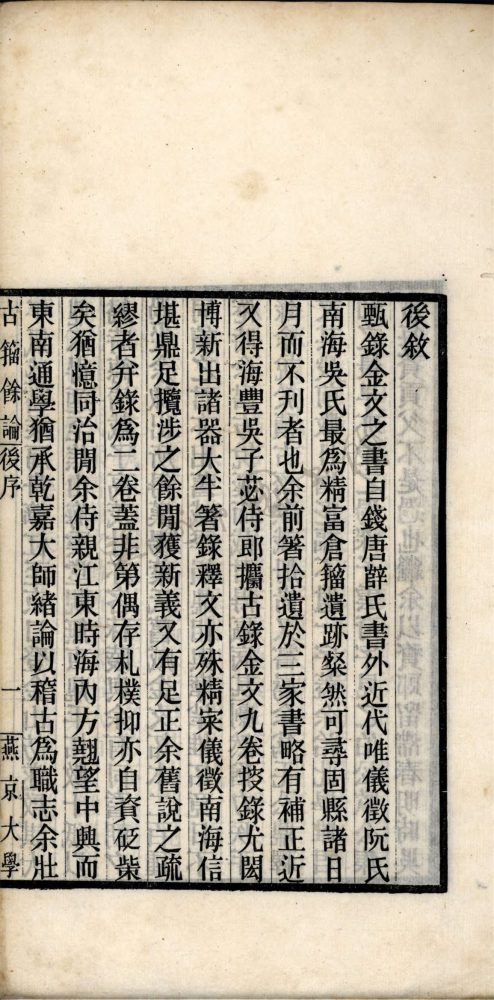 後敘
甄錄金文之書自錢唐薛氏書外近代唯儀徵阮氏
南海吳氏最爲精富倉籀遺跡粲然可尋固縣諸日
月而不刊者也余前箸拾遺於三家書略有補正近
又得海豐吳子苾侍郎攗古錄金文九卷挍錄尤閎
博新出諸器大半箸錄釋文亦殊精宷儀徵南海信
堪鼎足攬涉之餘閒獲新義又有足正余舊說之疏
繆者幷錄爲二卷蓋非第偶存札樸抑亦自資砭𥹂
矣猶憶同治閒余侍親江東時海內方翹望中興而
東南通學猶承乾嘉大師緒論以稽古爲職志余壯
古籀餘論後序 一 燕京大學